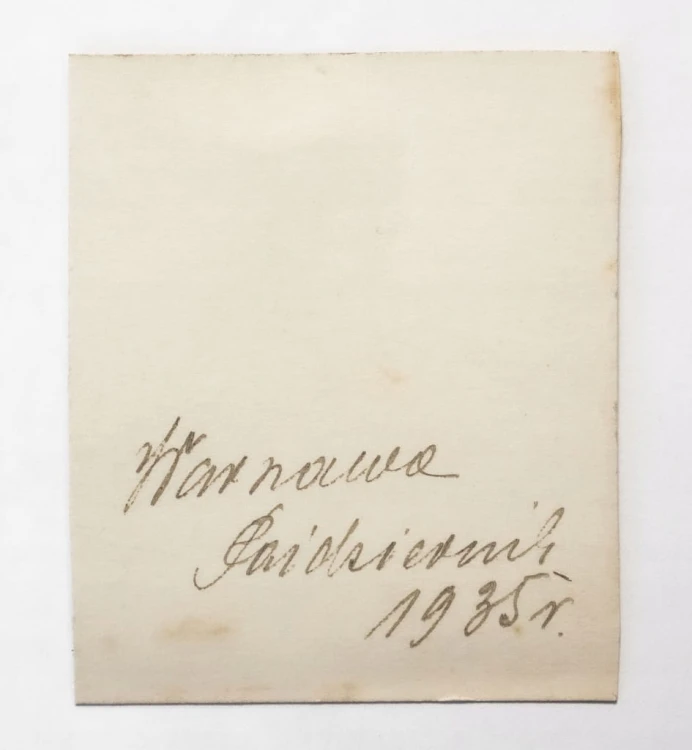 Warszawa
Październik
1935 r.